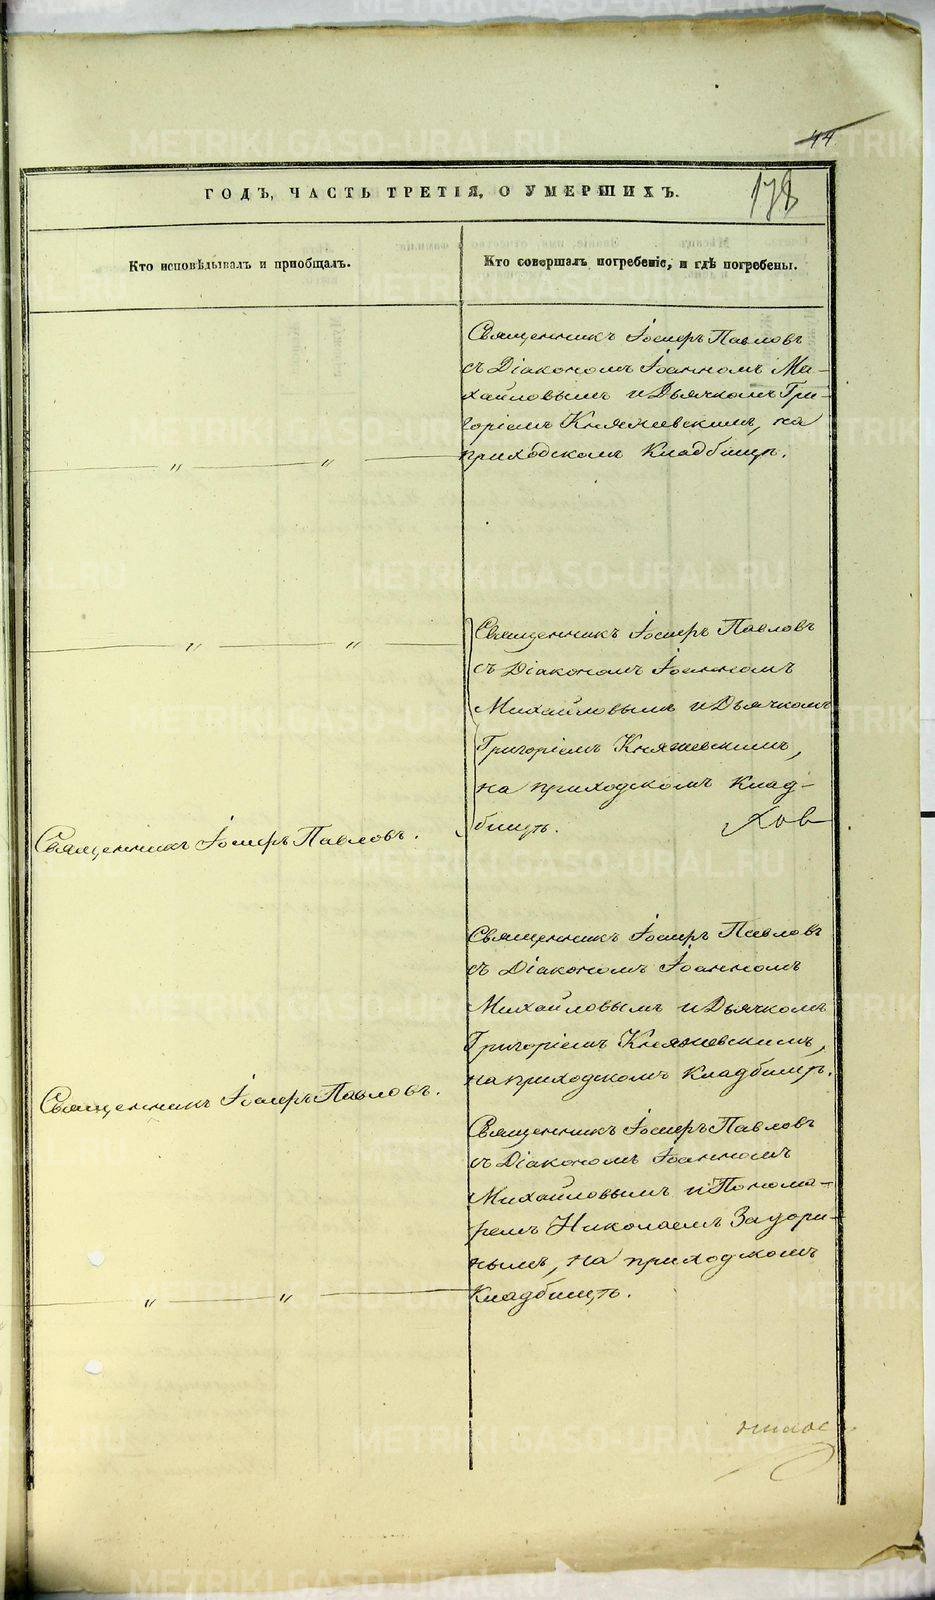 44
178
ГОДЪ, ЧАСТЬ ТРЕТІЯ, О УМЕРШИХЪ.
Кто исповѣдывалъ и пріобщалъ.
Кто совершалъ погребеніе, и гдѣ погребены.
Священникъ Іосифъ Павловъ
съ Діакономъ Іоанномъ Ми-
хайловымъ и Дьячкомъ Гри-
горіемъ Княжевскимъ, на
приходскомъ Кладбищѣ.
" "
" "
Священникъ Іосифъ Павловъ
съ Діакономъ Іоанномъ
Михайловымъ и Дьячкомъ
Григоріемъ Княжевскимъ,
на приходскомъ Клад-
бищѣ.
Священникъ Іосифъ Павловъ.
Священникъ Іосифъ Павловъ
съ Діакономъ Іоанномъ
Михайловымъ и Дьячкомъ
Григоріемъ Княжевскимъ,
на приходскомъ Кладбищѣ.
Священникъ Іосифъ Павловъ.
Священникъ Іосифъ Павловъ
съ Діакономъ Іоанномъ
Михайловымъ и Понома-
ремъ Николаемъ Задори-
нымъ, на приходскомъ
Кладбищѣ.
" "
METRIKI.GASO-URAL.RU